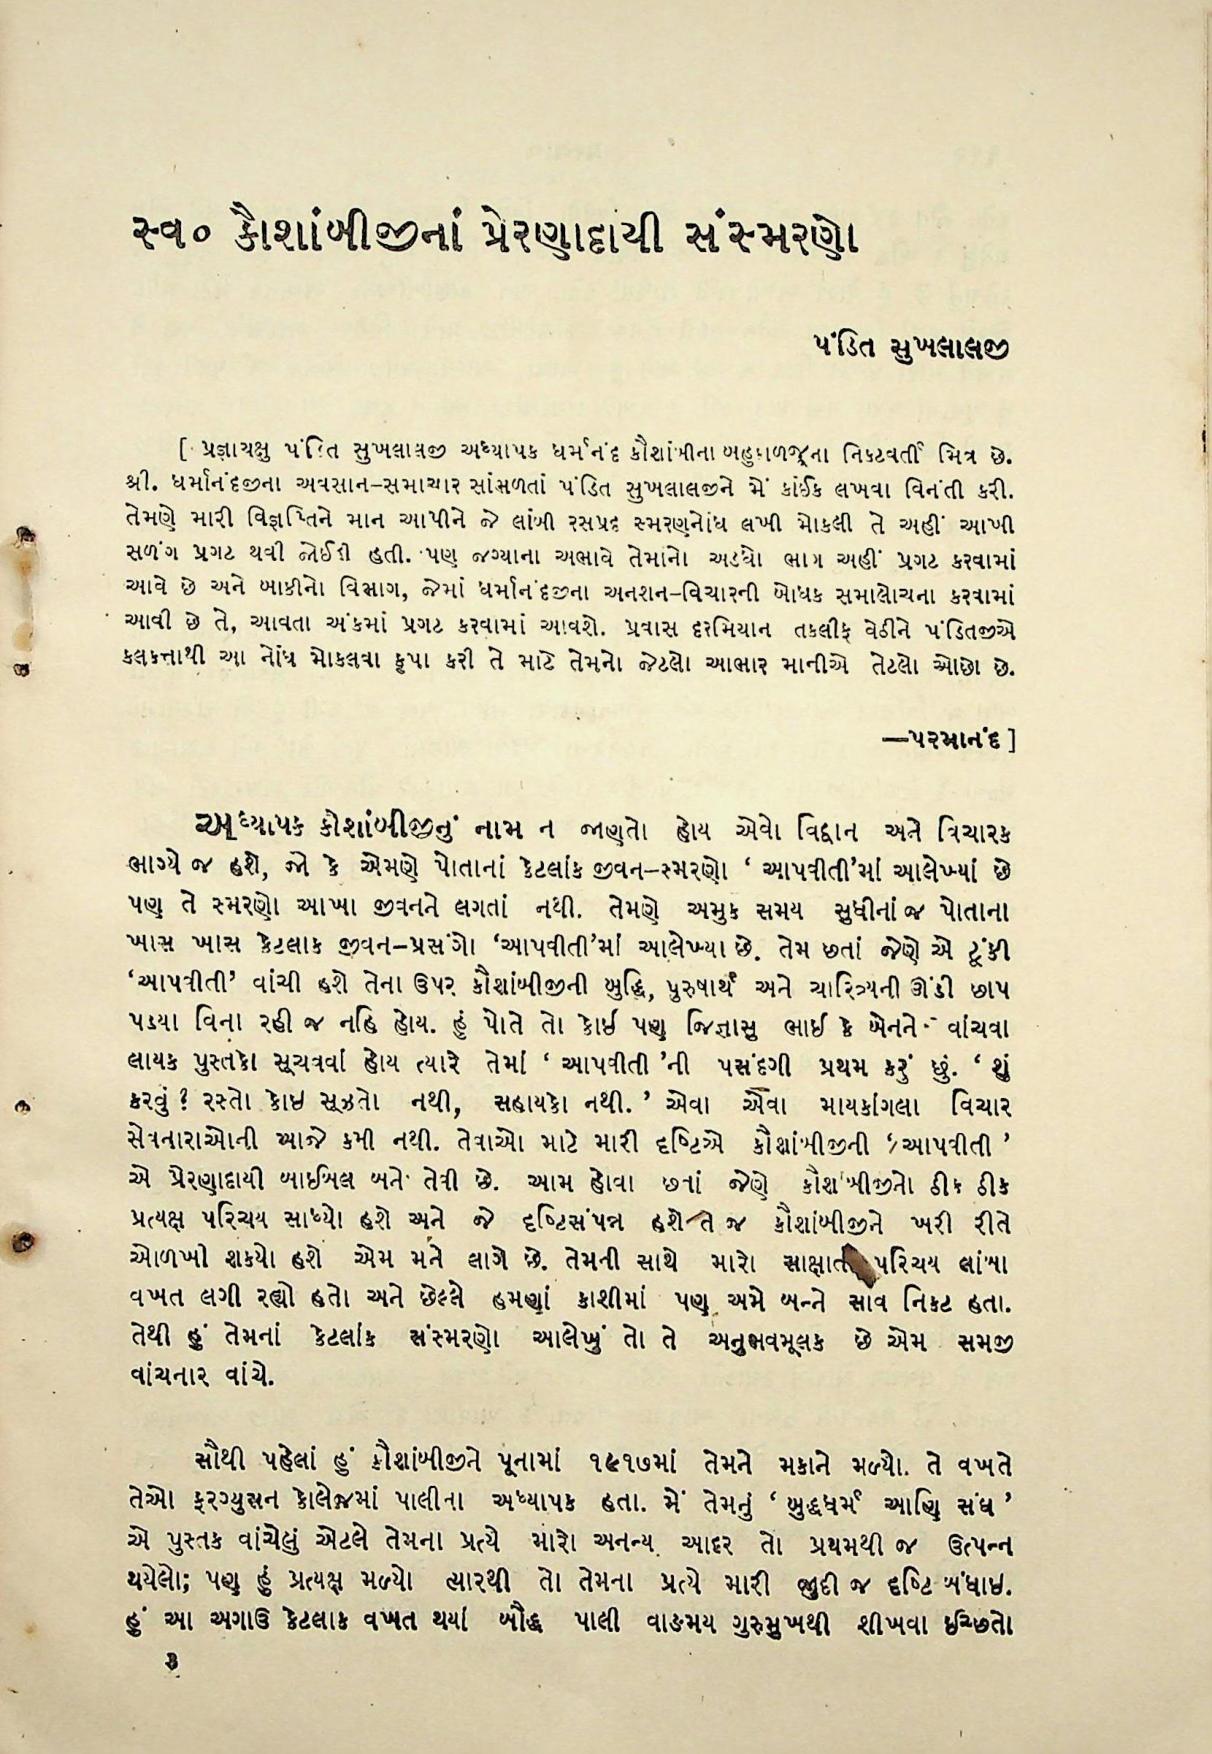 સ્વ૦ કૌશાંબીજીનાં પ્રેરણાદાયી સંસ્મરણો
પંડિત સુખલાલજી
[ પ્રજ્ઞાચક્ષુ પંડિત સુખલાલજી અધ્યાપક ધર્માનંદ કૌશાંબીના બહુકાળજૂના નિકટવર્તી મિત્ર છે.
શ્રી. ધર્માનંદજીના અવસાન-સમાચાર સાંભળતાં પંડિત સુખલાલજીને મેં કાંઈક લખવા વિનંતી કરી.
તેમણે મારી વિજ્ઞપ્તિને માન આપીને જે લાંબી રસપ્રદ સ્મરણનોંધ લખી મોકલી તે અહીં આખી
સળંગ પ્રગટ થવી જોઈતી હતી. પણ જગ્યાના અભાવે તેમાંનો અડધો ભાગ અહીં પ્રગટ કરવામાં
આવે છે અને બાકીનો વિભાગ, જેમાં ધર્માનંદજીના અનશન-વિચારની બોધક સમાલોચના કરવામાં
આવી છે તે, આવતા અંકમાં પ્રગટ કરવામાં આવશે. પ્રવાસ દરમિયાન તકલીફ વેઠીને પંડિતજીએ
કલકત્તાથી આ નોંધ મોકલવા કૃપા કરી તે માટે તેમનો જેટલો આભાર માનીએ તેટલો ઓછો છે.
—પરમાનંદ ]
અધ્યાપક કોશાંબીજીનું નામ ન જાણતો હોય એવો વિદ્વાન અને વિચારક
ભાગ્યે જ હશે, જો કે એમણે પોતાનાં કેટલાંક જીવન-સ્મરણો ‘ આપવીતી’માં આલેખ્યાં છે
પણ તે સ્મરણો આખા જીવનને લગતાં નથી. તેમણે અમુક સમય સુધીનાં જ પોતાના
ખાસ ખાસ કેટલાક જીવન-પ્રસંગો ‘આપવીતી’માં આલેખ્યા છે. તેમ છતાં જેણે એ ટૂંકી
‘આપવીતી’ વાંચી હશે તેના ઉપર કૌશાંબીજીની બુદ્ધિ, પુરુષાર્થ અને ચારિત્ર્યની ઊંડી છાપ
પડયા વિના રહી જ નહિ હોય. હું પોતે તો કોઇ પણ જિજ્ઞાસુ ભાઇ કે બેનને વાંચવા
લાયક પુસ્તકો સૂચવવાં હોય ત્યારે તેમાં ‘ આપવીતી ’ની પસંદગી પ્રથમ કરું છું. ‘ શું
કરવું ? રસ્તો કોઇ સૂઝતો નથી, સહાયકો નથી. ’ એવા એવા માયકાંગલા વિચાર
સેવનારાઓની આજે કમી નથી. તેવાઓ માટે મારી દૃષ્ટિએ કૌશાંબીજીની ‘ આપવીતી ’
એ પ્રેરણાદાયી બાઈબલ બને તેવી છે. આમ હોવા છતાં જેણે કૌશાંબીજીનો ઠીક ઠીક
પ્રત્યક્ષ પરિચય સાધ્યો હશે અને જે દૃષ્ટિસંપન્ન હશે તે જ કૌશાંબીજીને ખરી રીતે
ઓળખી શકયો હશે એમ મને લાગે છે. તેમની સાથે મારો સાક્ષાત પરિચય લાંબા
વખત લગી રહ્યો હતો અને છેલ્લે હમણાં કાશીમાં પણ અમે બન્ને સાવ નિકટ હતા.
તેથી હું તેમનાં કેટલાંક સંસ્મરણો આલેખું તો તે અનુભવમૂલક છે એમ સમજી
વાંચનાર વાંચે.
સૌથી પહેલાં હું કૌશાંબીજીને પૂનામાં ૧૯૧૭માં તેમને મકાને મળ્યો. તે વખતે
તેઓ ફરગ્યુસન કોલેજમાં પાલીના અધ્યાપક હતા. મેં તેમનું ‘ બુદ્ધધર્મ આણિ સંઘ ’
એ પુસ્તક વાંચેલું એટલે તેમના પ્રત્યે મારો અનન્ય આદર તો પ્રથમથી જ ઉત્પન્ન
થયેલો; પણ હું પ્રત્યક્ષ મળ્યો ત્યારથી તો તેમના પ્રત્યે મારી જુદી જ દૃષ્ટિ બંધાઇ.
હું આ અગાઉ કેટલાક વખત થયાં બૌદ્ધ પાલી વાઙમય ગુરુમુખથી શીખવા ઇચ્છિતો
૩